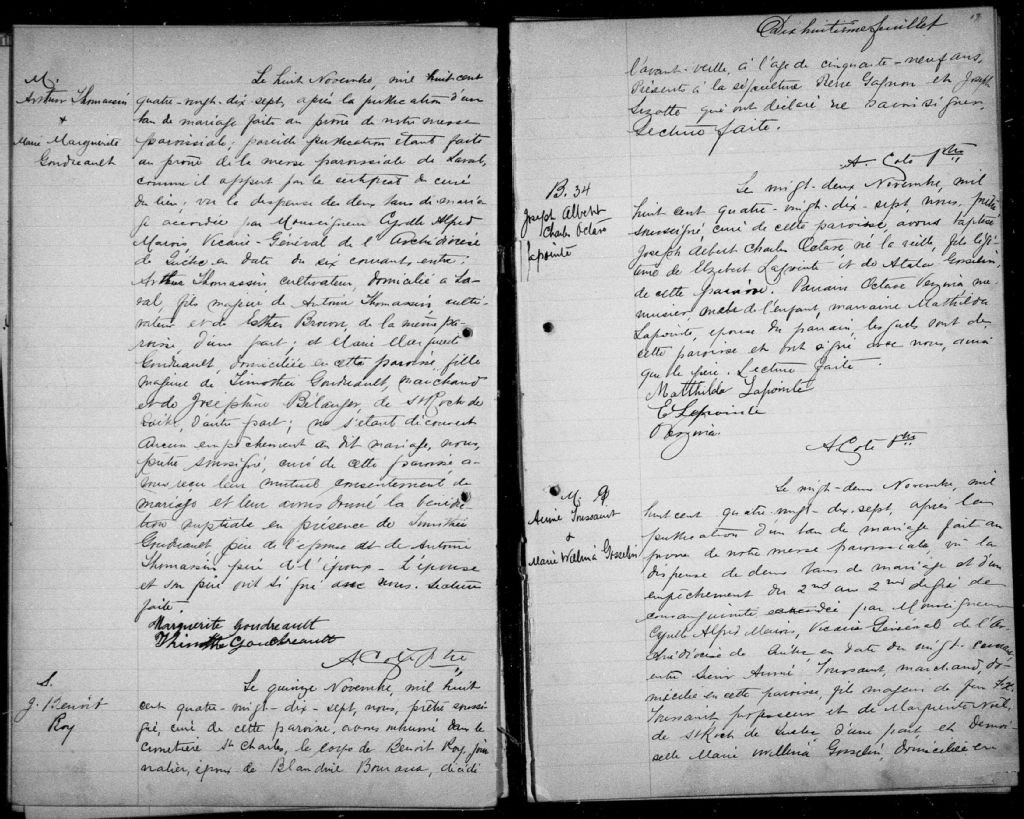 M.
Arthur Thomassin
+
Marie Marguerite
Goudreault
Le huit Novembre, mil huit cent
quatre-vingt-dix-sept, après la publication d'un
ban de mariage faite au prône de notre messe
paroissiale; pareille publication étant faite
au prône de la messe paroissiale de Laval,
comme il appert par le certificat du curé
du lieu; vu la dispense des deux bans de maria-
ge accordée par Monseigneur Cyrille Alfred
Marois Vicaire-Général de l'Archidiocèse
de Québec en date du six courant, entre:
Arthur Thomassin cultivateur, domicilié à La-
val, fils majeur de Antoine Thomassin culti-
vateur et de Esther Brown, de la même pa-
roisse d'une part; et Marie Marguerite
Goudreault, domiciliée en cette paroisse, fille
majeure de Timothée Goudreault, marchand
et de Joséphine Bélanger, de St Roch de
Québec, d'autre part; ne s'étant découvert
aucun empêchement au dit mariage, nous,
prêtre soussigné, curé de cette paroisse a-
vons reçu leur mutuel consentement de
mariage et leur avons donné la bénédic-
tion nuptiale en présence de Timothée
Goudreault, père de l'épouse et de Antoine
Thomassin père de l'époux. L'épouse
et son père ont signé avec nous. Lecture
faite.
Marguerite Goudreault
Thimothé Goudreault
A Côté Ptre
S.
J. Benoit
Roy
Le quinze Novembre, mil huit
cent quatre-vingt-dix-sept, nous, prêtre soussi-
gné, curé de cette paroisse, avons inhumé dans le
cimetière St Charles, le corps de Benoit Roy, jour-
nalier, époux de Blandine décédé
Dix huitième feuillet
l'avant-veille, à l'âge de cinquante-neuf ans.
Présents à la sépulture Pierre Gagnon et Joseph
Lizotte qui ont déclaré ne savoir signer.
Lecture faite.
A. Coté Ptre
B. 34
Joseph Albert
Charles Octave
Lapointe
Le vingt-deux Novembre, mil
huit cent quatre-vingt-dix-sept, nous, prêtre
soussigné curé de cette paroisse, avons baptisé
Joseph Albert Charles Octave né la veille, fils légi-
time de Elzébert Lapointe et de Atala Gosselin,
de cette paroisse. Parrain Octave Vézina me-
nuisier de l'enfant, marraine Mathilda
Lapointe, épouse du parrain, lesquels sont de
cette paroisse et ont signé avec nous, ainsi
que le père. Lecture faite.
Matthilda Lapointe
E Lapointe
O Vézina
A. Coté Ptre
M. 9
Aimé Toussaint
+
Marie Wellina Gosselin
Le vingt-deux Novembre, mil
huit cent quatre-vingt-dix-sept, après la
publication d'un ban de mariage fait au
prône de notre messe paroissiale vu la
dispense de deux bans de mariage et d'un
empêchement du 2nd au 2nd degré de
consanguinité accordée par Monseigneur
Cyrille Alfred Marois, Vicaire Général de l'Ar-
chidiocèse de Québec, en date du vingt courant
entre Sieur Aimé Toussaint, marchand, do-
micilié en cette paroisse, fils majeur de feu
Toussaint et de Marguerite Noël,
de St Roch de Québec, d'une part, et Demoi-
selle Marie Wellina Gosselin, domiciliée en